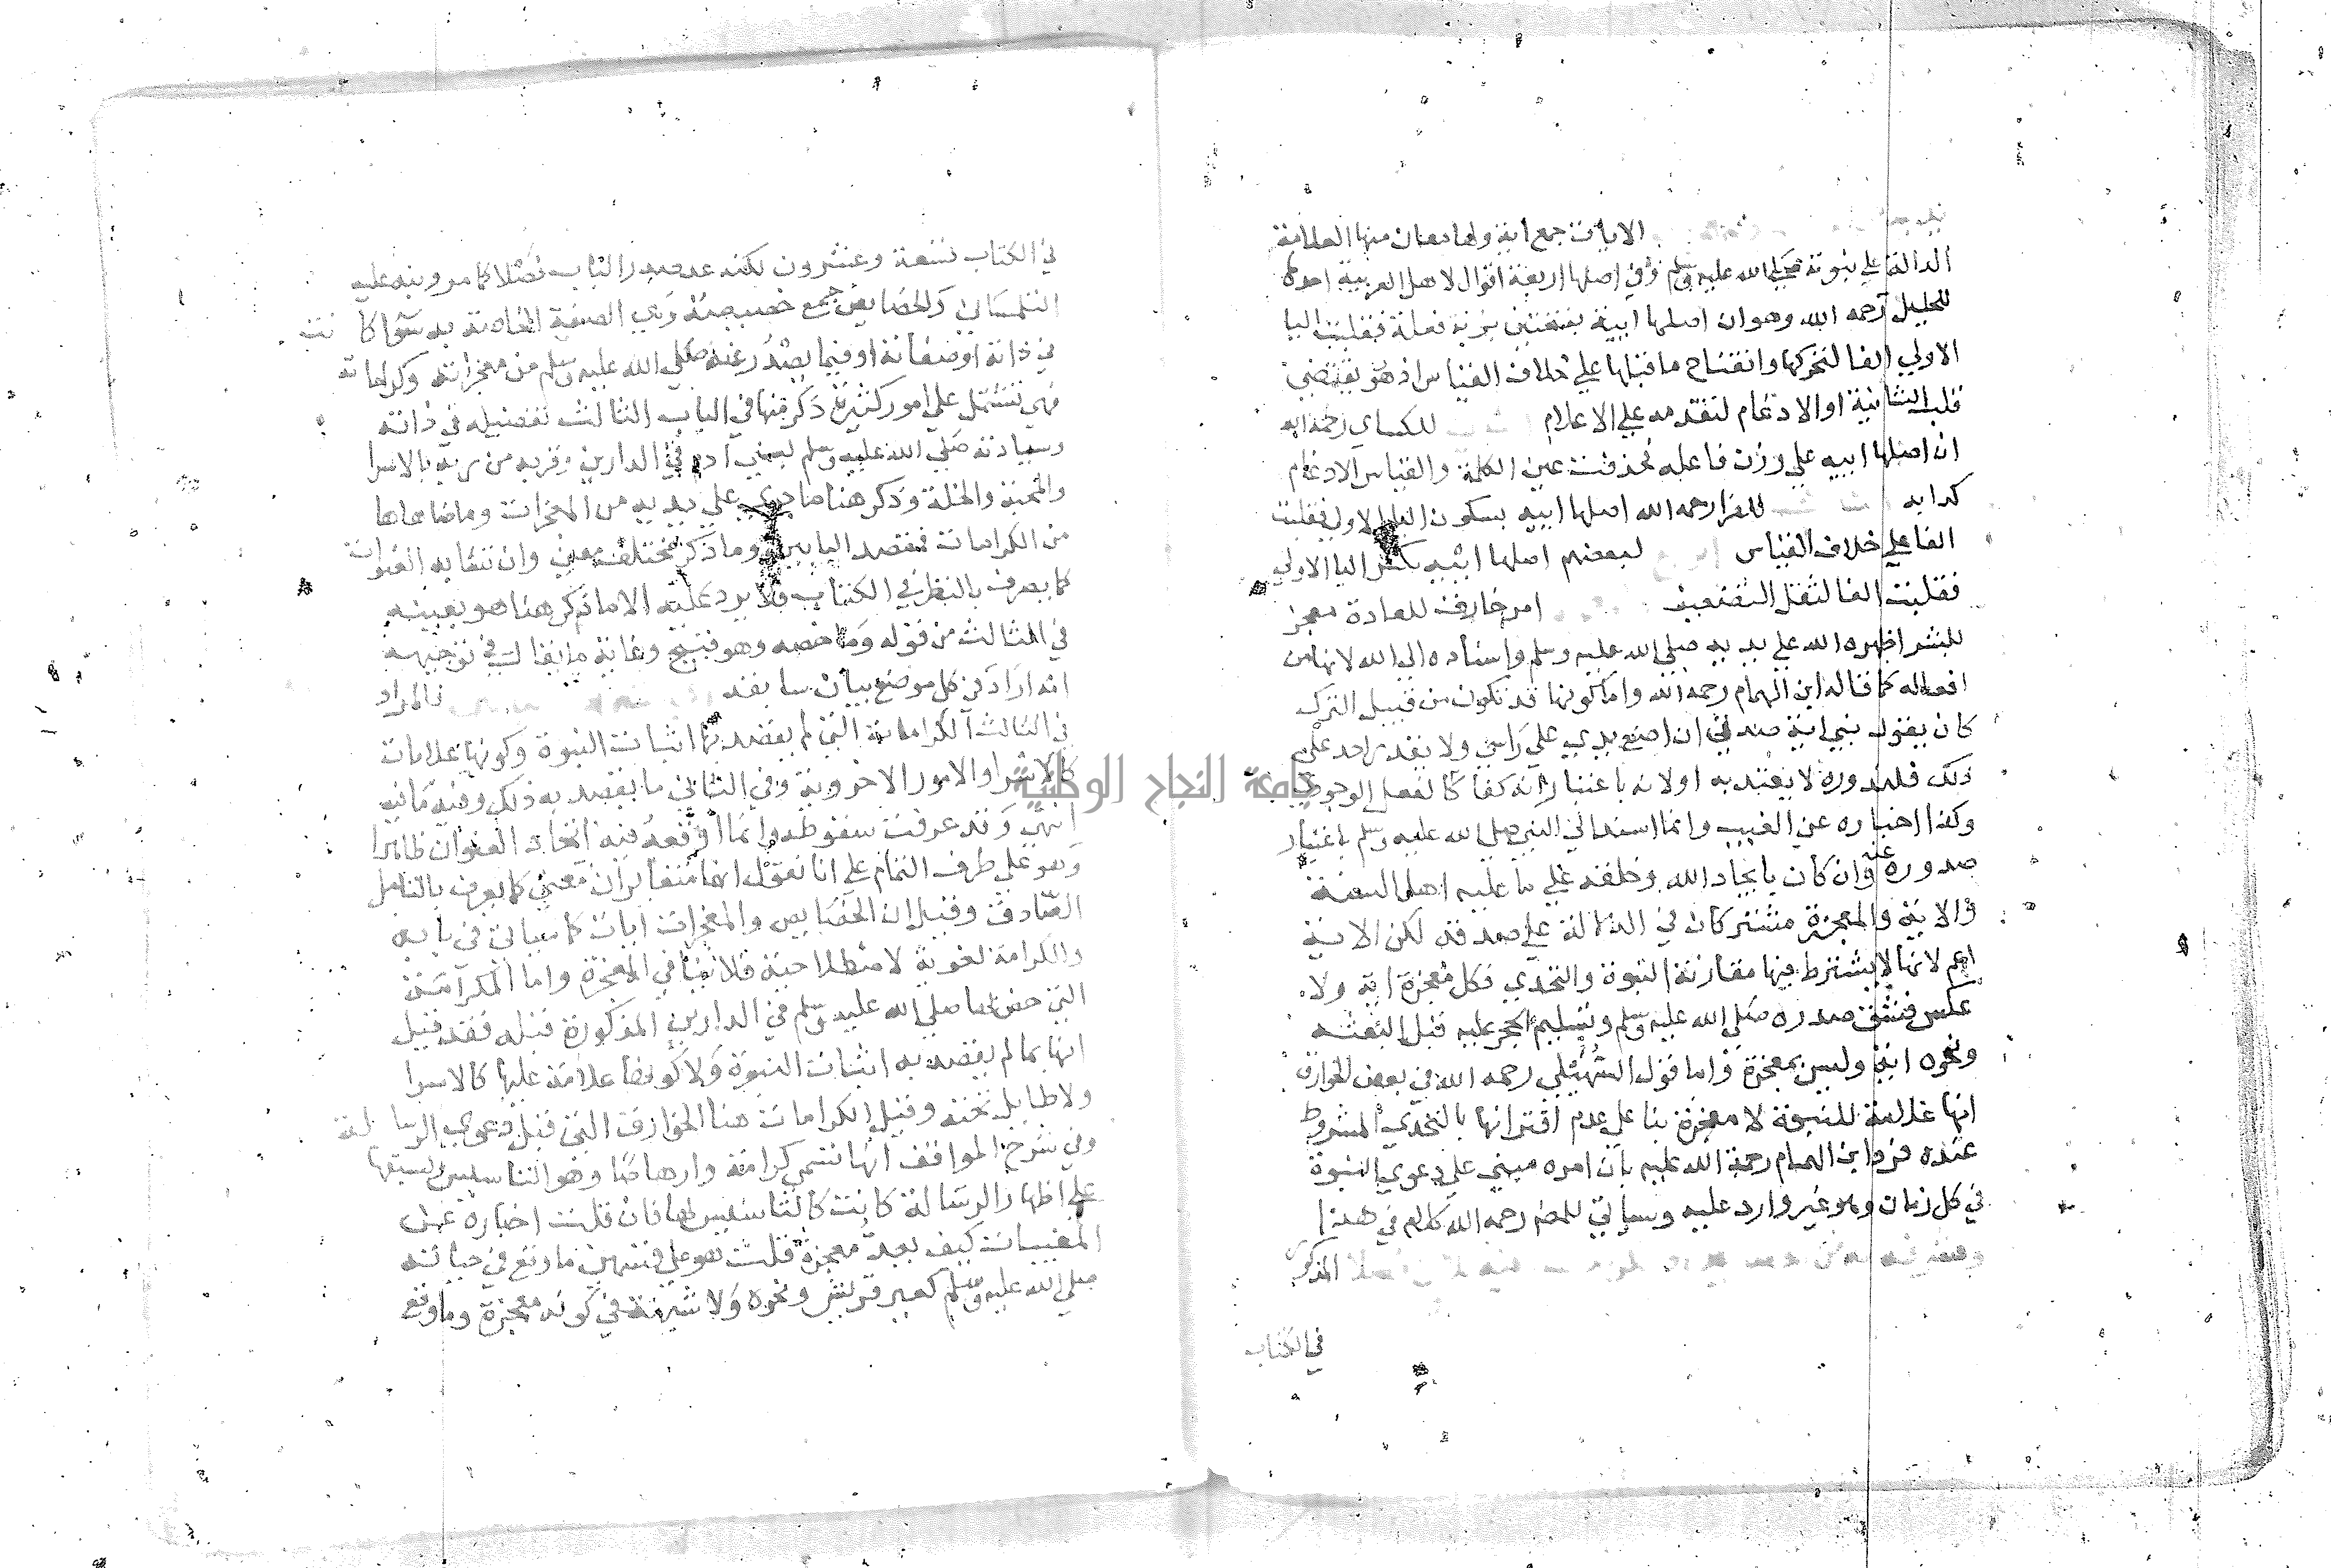 الايات جمع اية ولها معان منها العلامة
الدالة علي نبوته صلي الله عليه وسلم وفي اصلها اربعة اقوال لاهل العربية احدها
للخليل رحمه الله وهو ان اصلها ايية بفتحتين بزنة فعلة فقلبت اليا
الاولي الفا لتحركها وانفتاح ما قبلها علي خلاف القياس اذ هو يقتضي
قلب الثانية او الادغام لتقدمه علي الاعلام للكساي رحمه الله
ان اصلها ابيه علي وزن فاعله فحذفت عين الكلمة والقياس الادغام
كدابه للفرا رحمه الله اصلها ابيه بسكون اليا الاولي فقلبت
الفا علي خلاف القياس لبعضهم اصلها ابيه بكسر اليا الاولي
فقلبت الفا لثقل التضعيف امر خارق للعادة معجز
للبشر اظهره الله علي يديه صلي الله عليه وسلم واسناده الي الله لانها من
افعاله كما قاله ابن الهمام رحمه الله واما كونها قد تكون من قبيل الترك
كان يقول نبي اية صدقي ان اضع يدي علي راسي ولا يقدر احد علي
ذلك فلندوره لا يعتد به اولانه باعتبار انه كفا كالفعل الوجودي
وكذا اخباره عن الغيب وانما اسند الي النبي صلي الله عليه وسلم باعتبار
صدوره عنه وان كان بايجاد الله وخلقه علي ما عليه اهل السنة
والاية والمعجزة مشتركان في الدلالة علي صدقه لكن الاية
اعم لانها لا يشترط فيها مقارنة النبوة والتحدي فكل معجزة اية ولا
عكس فشق صدره صلي الله عليه وسلم وتسليم الحجر عليه قبل البعثة
ونحوه اية وليس بمعجزة واما قول السهيلي رحمه الله في بعض الخوارق
انها علامة للنبوة لا معجزة بنا علي عدم اقترانها بالتحدي المشروط
عنده فرد ابن الهمام رحمة الله عليه بان امره مبني علي دعوي النبوة
في كل زمان وهو غير وارد عليه وسياتي للمصم رحمه الله كلام في هذا
المذكور
في الكتاب
في الكتاب تسعة وعشرون لكنه عد صدر الباب فصلا كما مر ونبه عليه
التلمساني والخصايص جمع خصيصة وهي الصفة الخاصة به سوا كانت
في ذاته او صفاته او فيما يصدر عنه صلي الله عليه وسلم من معجزاته وكراماته
فهي تشتمل علي امور كثيرة ذكر منها في الباب الثالث تفضيله في ذاته
وسيادته صلي الله عليه وسلم لبني آدم في الدارين وقربه من ربه بالاسرا
والمحبة والخلة وذكر هنا ما جري علي يديه من المعجزات وما ضاهاها
من الكرامات فقصد البابين وما ذكر مختلف معني وان تشابه العنوان
كما يعرف بالنظر في الكتاب ولا يرد عليه الا ما ذكر هنا هو بعينه
في الثالث من قوله وما خصه وهو قبيح وغاية ما يقال في توجيهه
انه اراد في كل موضع بيان ما يقد فالمراد
في الثالث الكرامات التي لم يقصد بها اثبات النبوة وكونها علامات
كالاسرا والامور الاخروية وفي الثاني ما يقصد به ذلك وفيه ما فيه
انتهي وقد عرفت سقوطه وانما اوقعه فيه اتحاد العنوان ظاهرا
وهو علي طرف الثمام علي انا نقول انهما متغايران معني كما يعرف بالتامل
الصادق وقيل ان الخصايص والمعجزات ايات كما سياتي في بابه
والكرامة لغوية لا اصطلاحية فلا تنافي المعجزة واما الكرامة
التي خص بها صلي الله عليه وسلم في الدارين المذكورة قبله فقد قيل
انها بما لم يقصد به اثبات النبوة ولا كونها علامة عليها كالاسرا
ولا طايل تحته وقيل الكرامات هنا الخوارق التي قبل دعوي الرسالة
وفي شرح المواقف انها تسمي كرامة وارهاصا وهو التاسيس لسبقها
علي اظهار الرسالة كانت كالتاسيس لها فان قلت اخباره عن
المغيبات كيف يعد معجزة قلت هو علي قسمين ما وقع في حياته
صلي الله عليه وسلم كعير قريش ونحوه ولا شبهة في كونه معجزة وما وقع
جامعة النجاح الوطنية